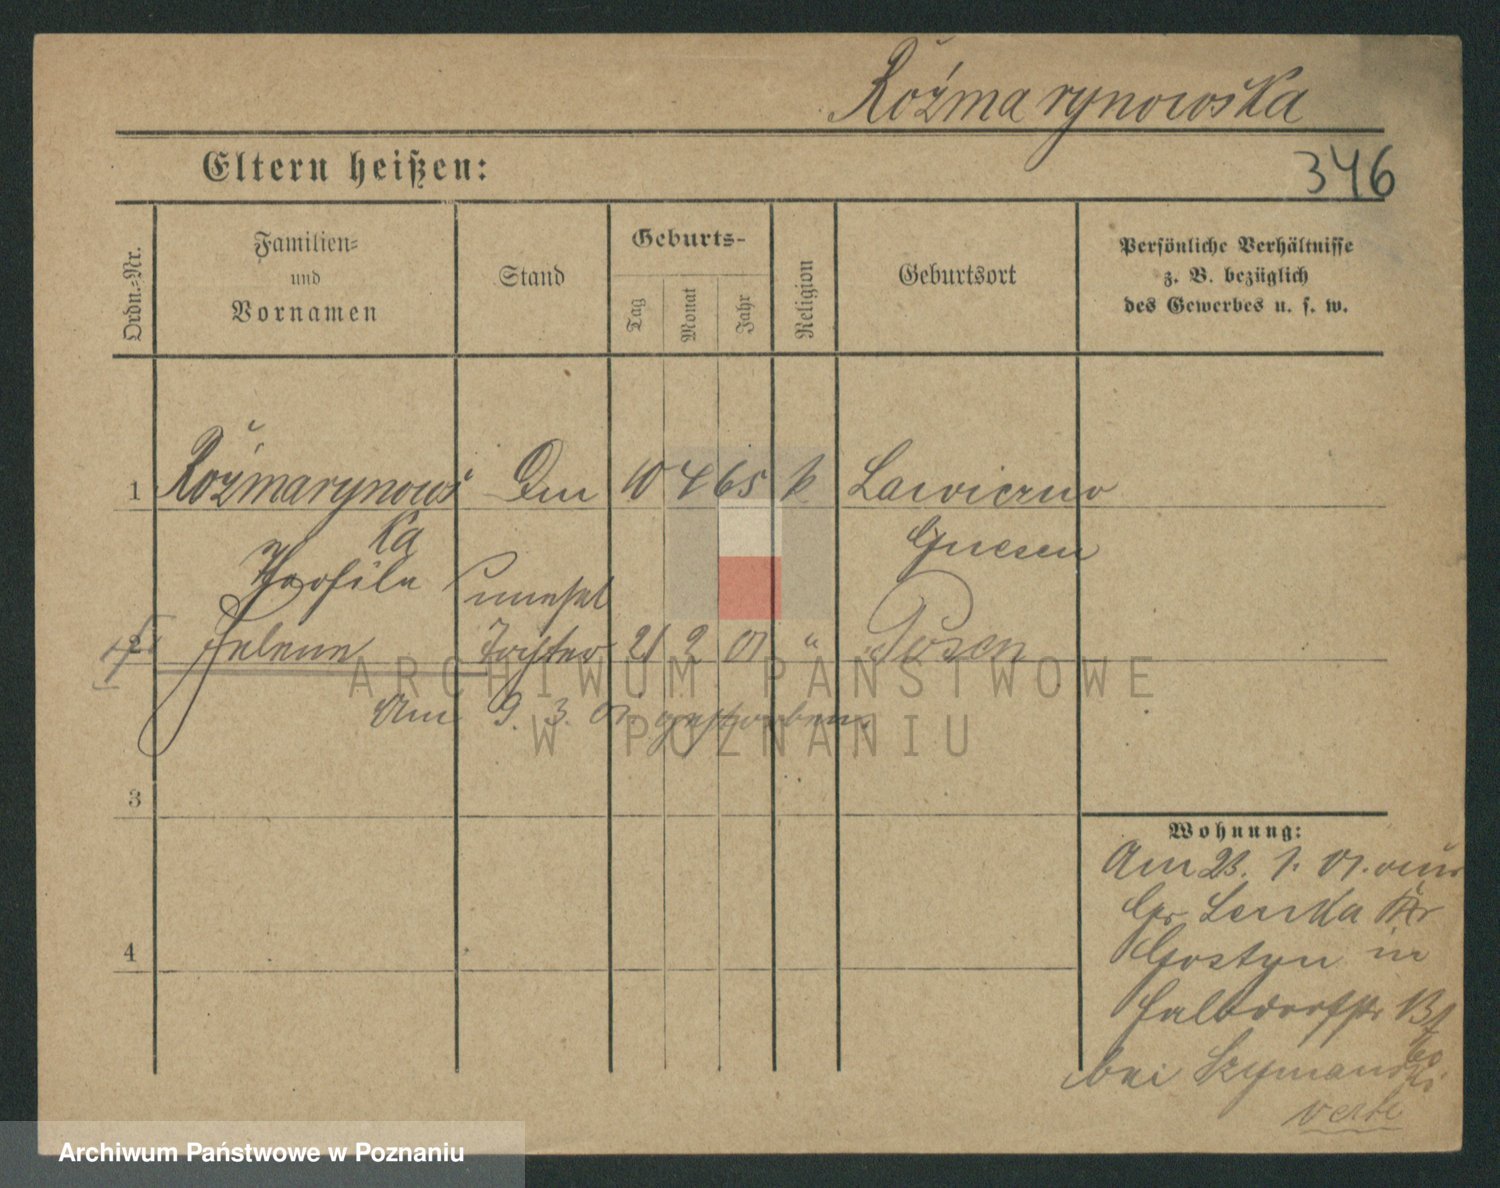 Rožmarynowska
Eltern heißen:
346
Ordn.-Nr.
Familien-
und
Vornamen
Stand
Geburts-
Tag
Monat
Jahr
Religion
Geburtsort
Persönliche Verhältnisse
z. B. bezüglich
des Gewerbes u. s. w.
1 Rožmarynows 10 4 65 k
ka
Gnesen
unehel
2 Helene Tochter 21 2 01 " Posen
Am 9. 3. 01 gestorben.
ARCHIWUM PAŃSTWOWE
W POZNANIU
3
Wohnung:
Am 23. 1. 01. aus
Gr. Lenka Kr
4
Gostyn in
Halbdorfstr 13
bei Szymanski
Archiwum Państwowe w Poznaniu